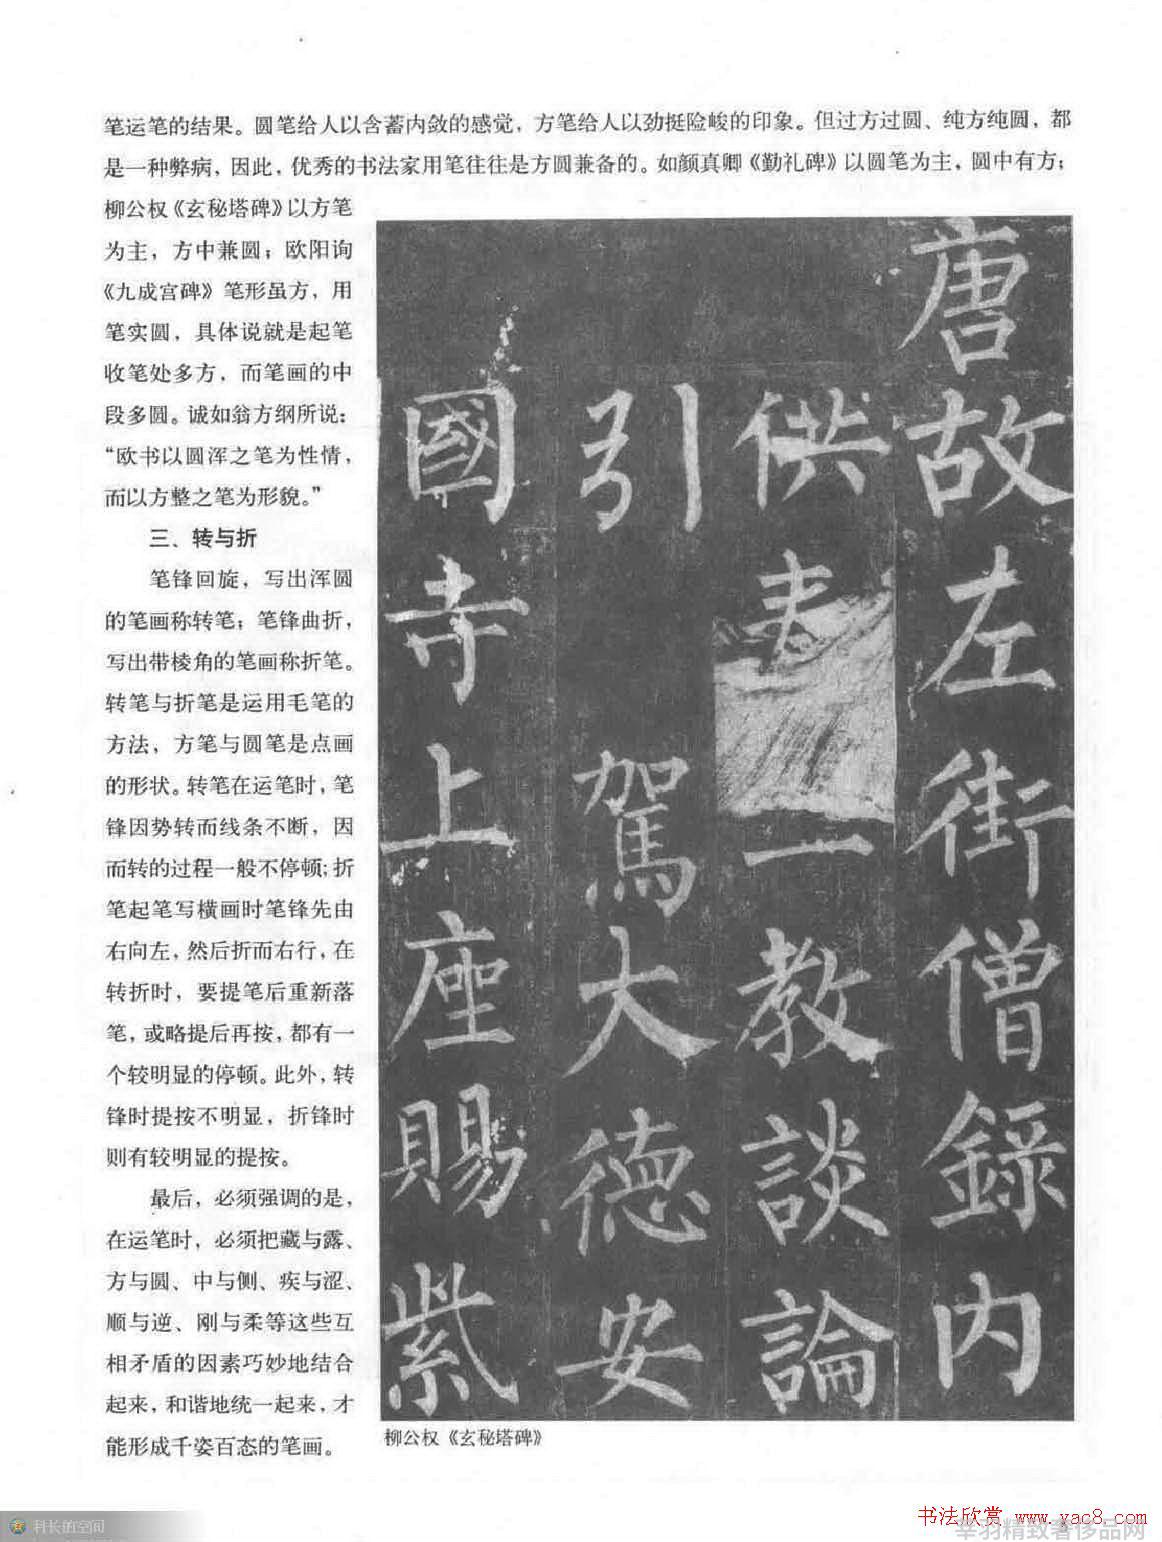 笔运笔的结果。圆笔给人以含蓄内敛的感觉，方笔给人以劲挺险峻的印象。但过方过圆、纯方纯圆，都
是一种弊病，因此，优秀的书法家用笔往往是方圆兼备的。如颜真卿《勤礼碑》以圆笔为主，圆中有方；
柳公权《玄秘塔碑》以方笔
为主，方中兼圆；欧阳询
《九成宫碑》笔形虽方，用
笔实圆，具体说就是起笔
收笔处多方，而笔画的中
段多圆。诚如翁方纲所说：
“欧书以圆浑之笔为性情，
而以方整之笔为形貌。”
三、转与折
笔锋回旋，写出浑圆
的笔画称转笔；笔锋曲折，
写出带棱角的笔画称折笔。
转笔与折笔是运用毛笔的
方法，方笔与圆笔是点画
的形状。转笔在运笔时，笔
锋因势转而线条不断，因
而转的过程一般不停顿；折
笔起笔写横画时笔锋先由
右向左，然后折而右行，在
转折时，要提笔后重新落
笔，或略提后再按，都有一
个较明显的停顿。此外，转
锋时提按不明显，折锋时
则有较明显的提按。
最后，必须强调的是，
在运笔时，必须把藏与露、
方与圆、中与侧、疾与涩、
顺与逆、刚与柔等这些互
相矛盾的因素巧妙地结合
起来，和谐地统一起来，才
能形成千姿百态的笔画。
唐故左街僧錄内
供表一教談論
引駕大德安
國寺上座賜紫
柳公权《玄秘塔碑》
科长的空间
书法欣赏 www.yac8.com
莘羽精致奢侈品网